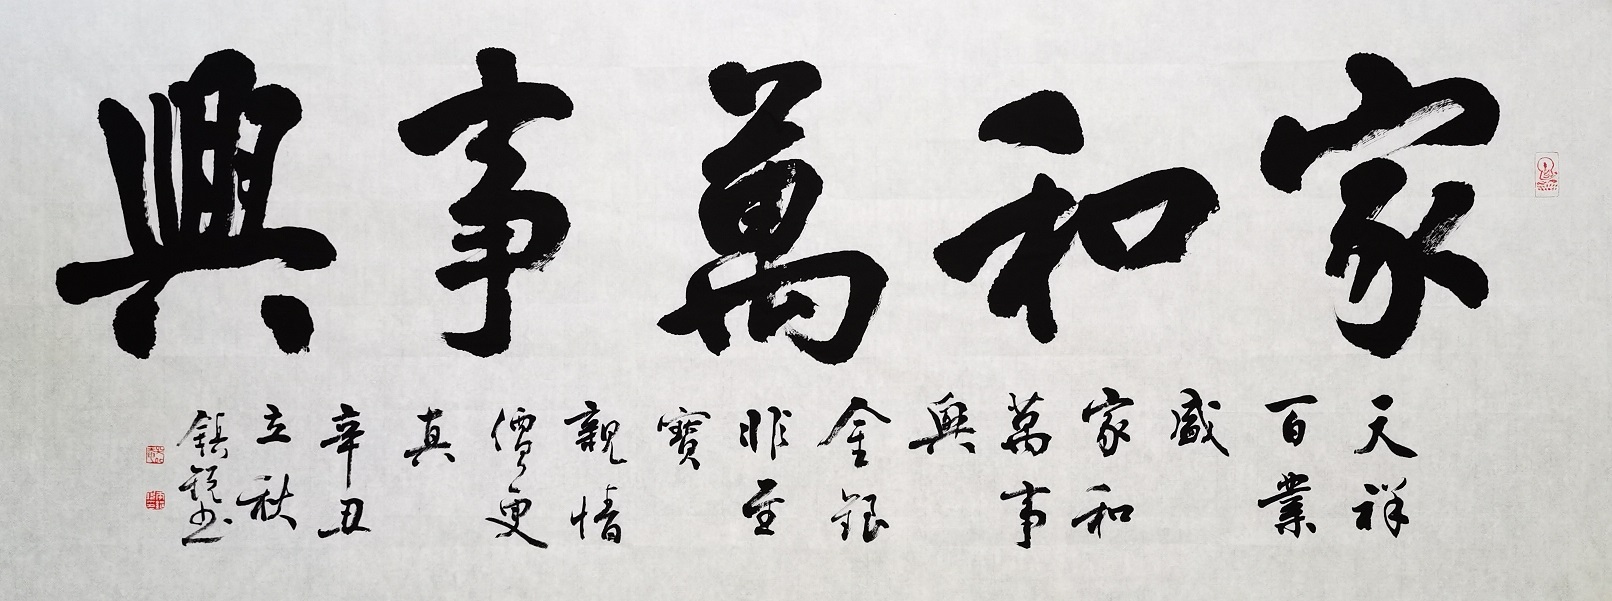 家和萬事興
天祥
百業
盛
家和
萬事
興
金銀
非至
寶
親情
價更
真
辛丑
立秋
鎮銳书